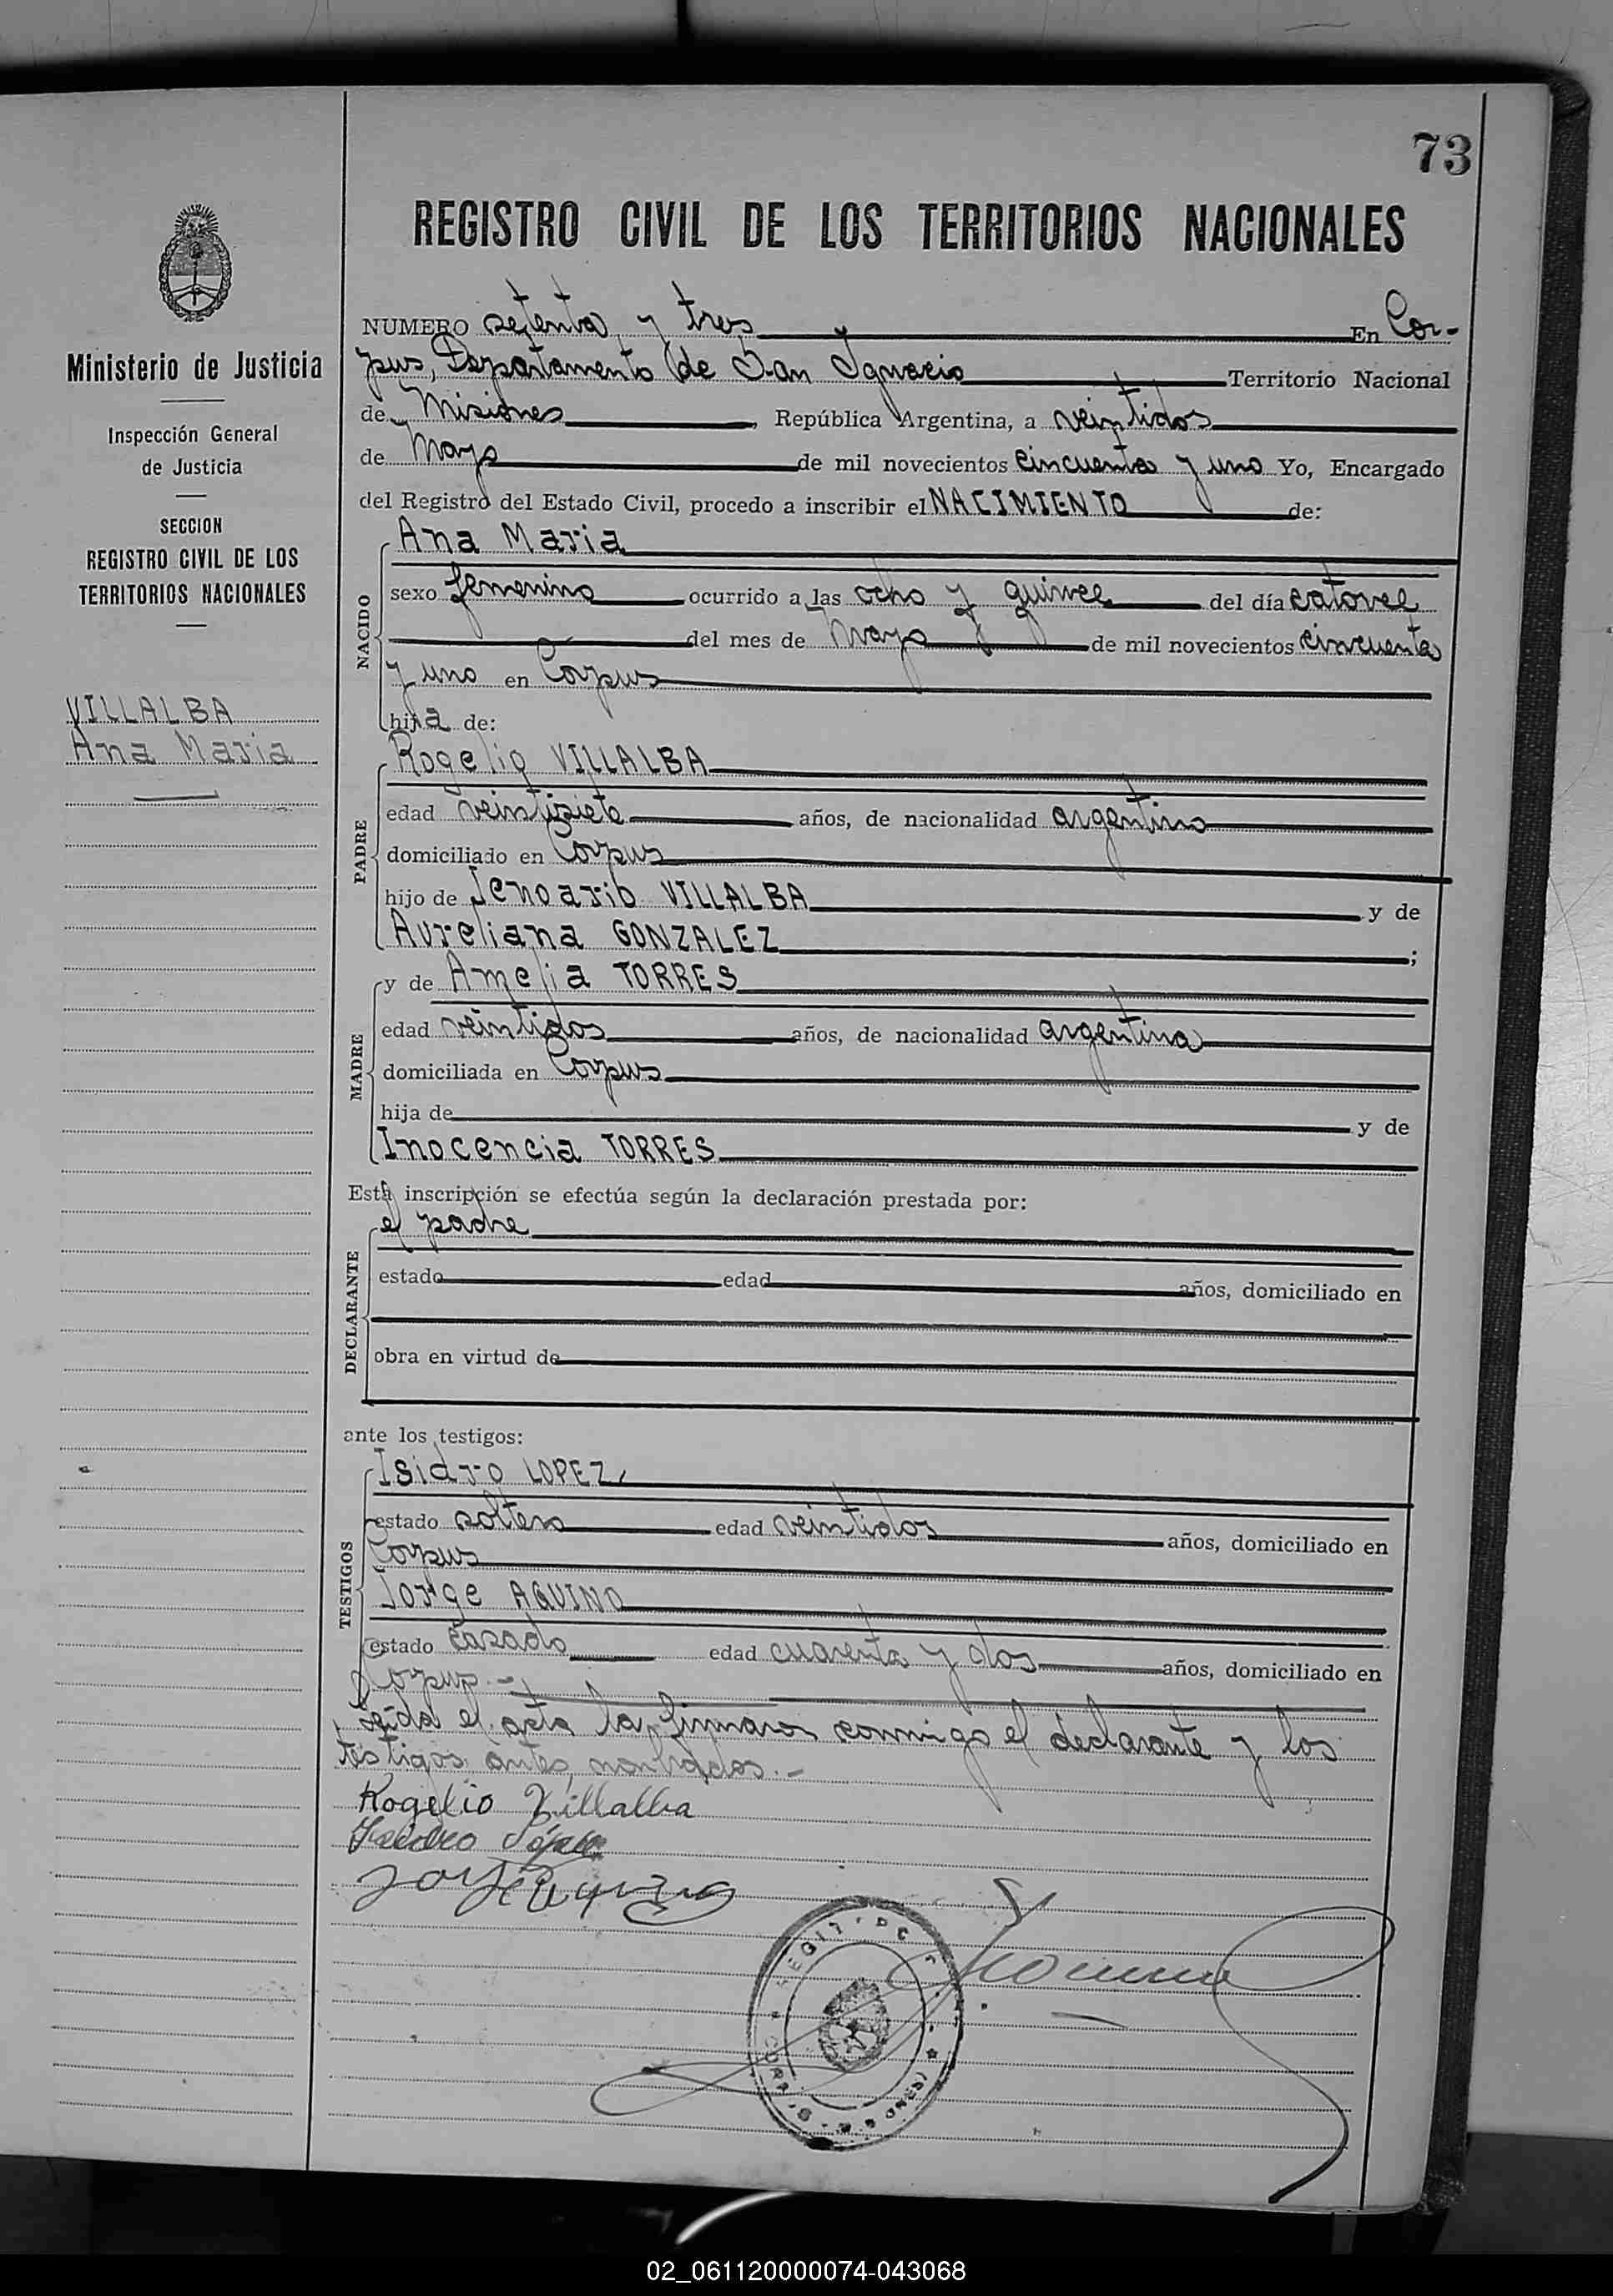 73
REGISTRO CIVIL DE LOS TERRITORIOS NACIONALES
Ministerio de Justicia
Inspección General
de Justicia
SECCION
REGISTRO CIVIL DE LOS
TERRITORIOS NACIONALES
VILLALBA
Ana Maria
NUMERO setenta y tres En Cor-
pus, Departamento de San Ignacio Territorio Nacional
de Misiones, República Argentina, a veintidos
de Mayo de mil novecientos cincuenta y uno Yo, Encargado
del Registro del Estado Civil, procedo a inscribir el NACIMIENTO de:
NACIDO
Ana Maria
sexo femenino ocurrido a las ocho y quince del día catorce
del mes de Mayo de mil novecientos cincuenta
y uno en Corpus
hija de:
PADRE
Rogelio VILLALBA
edad veintisiete años, de nacionalidad argentino
domiciliado en Corpus
hijo de Jenoario VILLALBA y de
Aureliana GONZALEZ;
MADRE
y de Amelia TORRES
edad veintidos años, de nacionalidad argentina
domiciliada en Corpus
hija de y de
Inocencia TORRES
Esta inscripción se efectúa según la declaración prestada por:
DECLARANTE
el padre
estado edad años, domiciliado en
obra en virtud de
ante los testigos:
TESTIGOS
Isidro LOPEZ
estado soltero edad veintidos años, domiciliado en
Corpus
Jorge AQUINO
estado casado edad cuarenta y dos años, domiciliado en
Corpus.-
Leida el acta la firmaron conmigo el declarante y los
testigos antes nombrados.-
Rogelio Villalba
Isidro López
Jorge Aquino
02_061120000074-043068